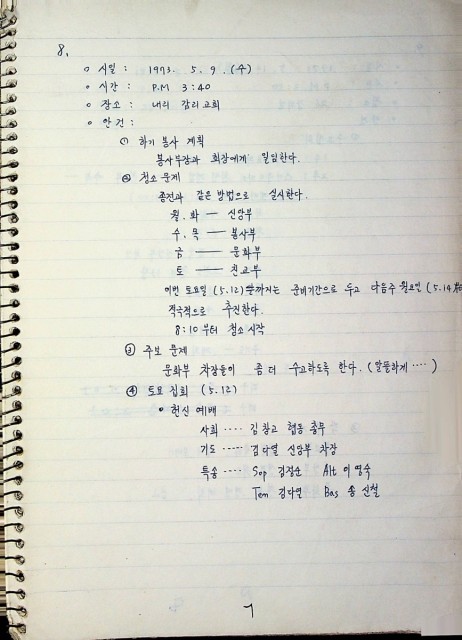 8.
o 시일 : 1973. 5. 9. (수)
o 시간 : P.M 3:40
o 장소 : 내리 감리교회
o 안건 :
① 하기 봉사 계획
봉사부장과 회장에게 일임한다.
② 청소 문제
종전과 같은 방법으로 실시한다.
월. 화 — 신앙부
수. 목 — 봉사부
금 — 문화부
토 — 친교부
이번 토요일 (5.12) 까지는 준비기간으로 두고 다음주 월요일 (5.14)
적극적으로 추진한다.
8:10 부터 청소 시작
③ 주보 문제
문화부 차장들이 좀 더 수고하도록 한다. (알뜰하게 ····)
④ 토요 집회 (5.12)
• 헌신 예배
사회 ···· 김창고 협동 총무
기도 ···· 김다열 신앙부 차장
특송 ···· Sop 김장순 Alt 이영숙
Ten 김다열 Bas 송신철
7